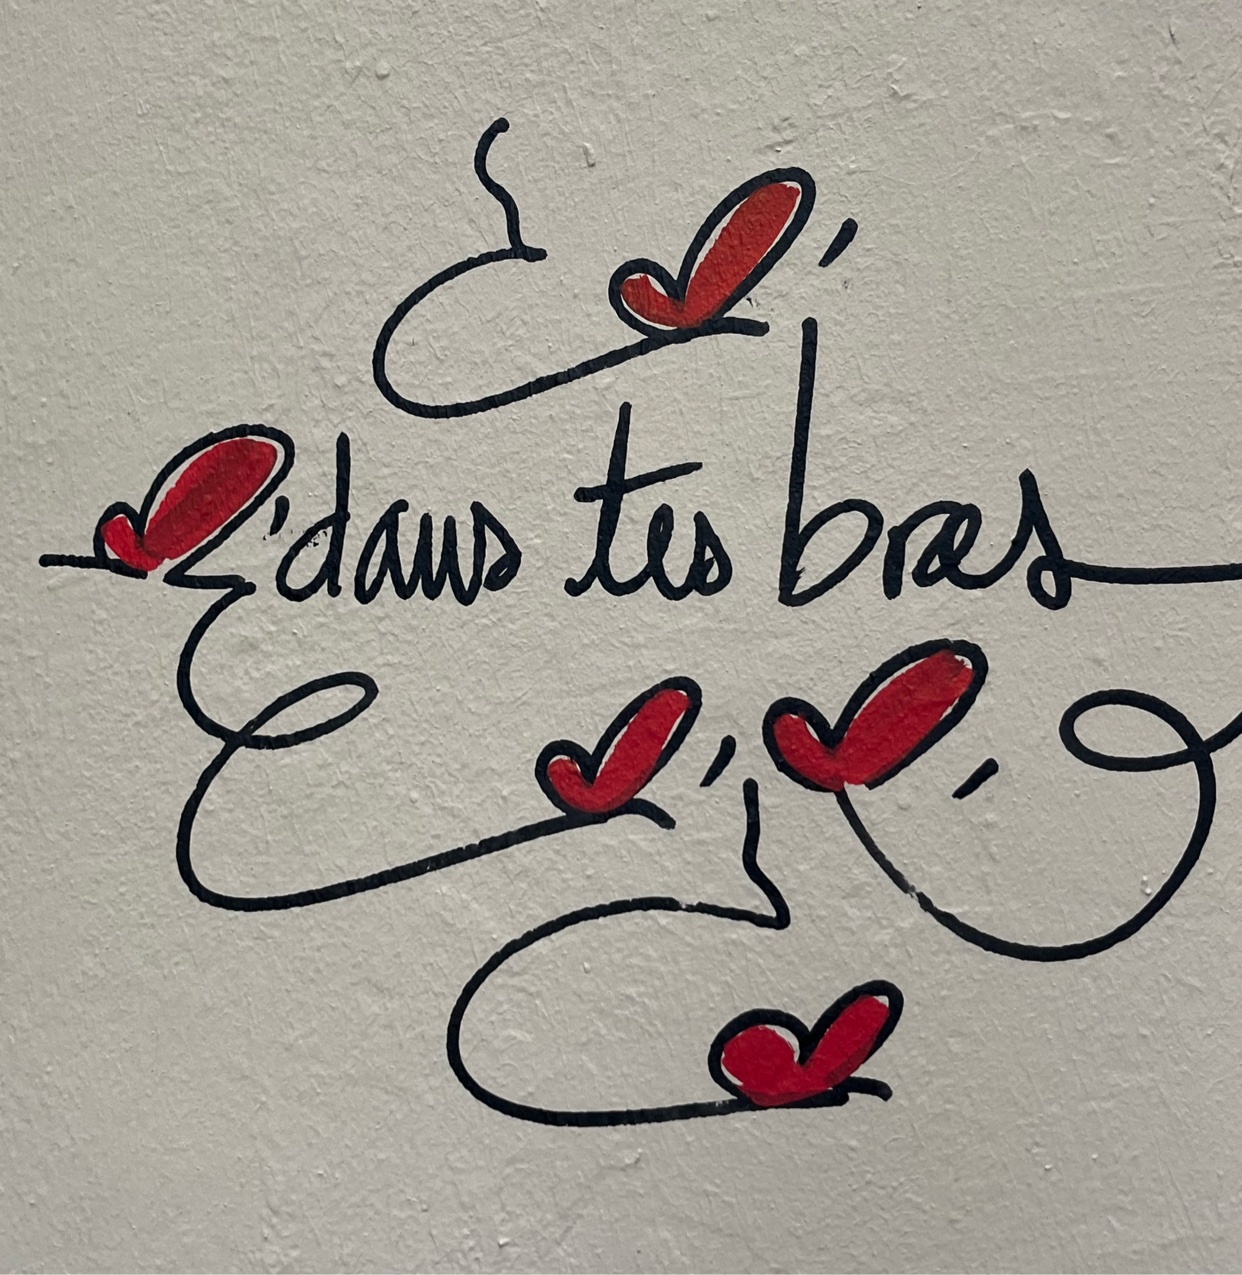 dans tes bras